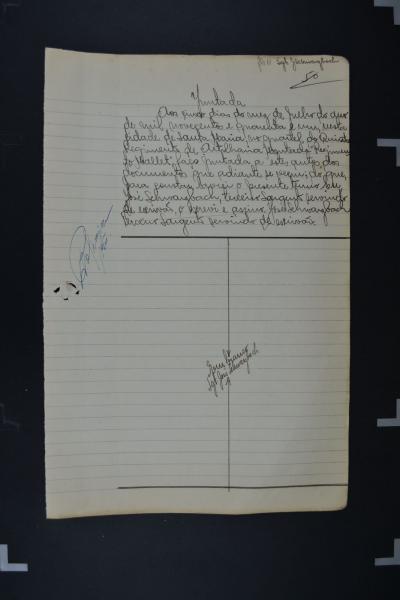 Sgt Schwanzbach
50
Juntada
Aos nove dias do mez de Julho do ano
de mil novecentos e quarenta e um, nesta
cidade de Santa Maria, no quartel do Quinto
Regimento de Artilharia Montada Regimen
to Mallet, faço juntada a estes autos dos
documentos que adiante se seguem; do que,
para constar, lavrei o presente termo. Eu
José Schwanzbach, terceiro Sargento servindo
de escrivão, o escrevi e assino. José Schwanzbach
Terceiro Sargento servindo de escrivão.
Em branco
Sgt José Schwanzbach